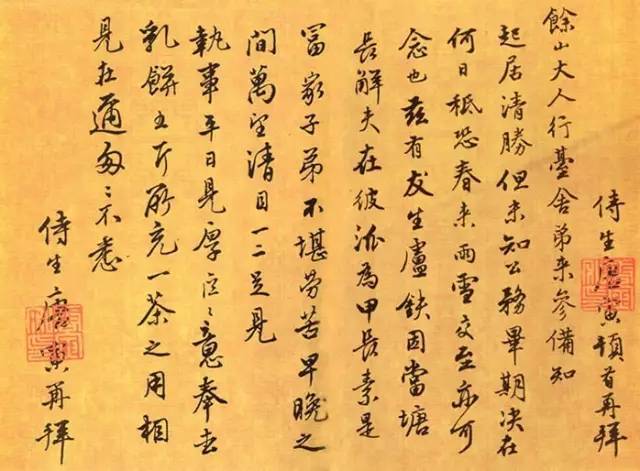 侍生唐寅頓首再拜
餘山大人行臺舍弟來參備知
起居清勝但未知公務畢期決在
何日秪恐春來雨雪交至亦可
念也茲有友生盧鈇因當塘
長解夫在彼泒為甲長素是
富家子弟不堪勞苦早晚之
間萬望清目一二足見
執事平日見厚區〻意奉去
乳餅五斤所充一茶之用相
見在邇匆〻不悉
侍生唐寅再拜